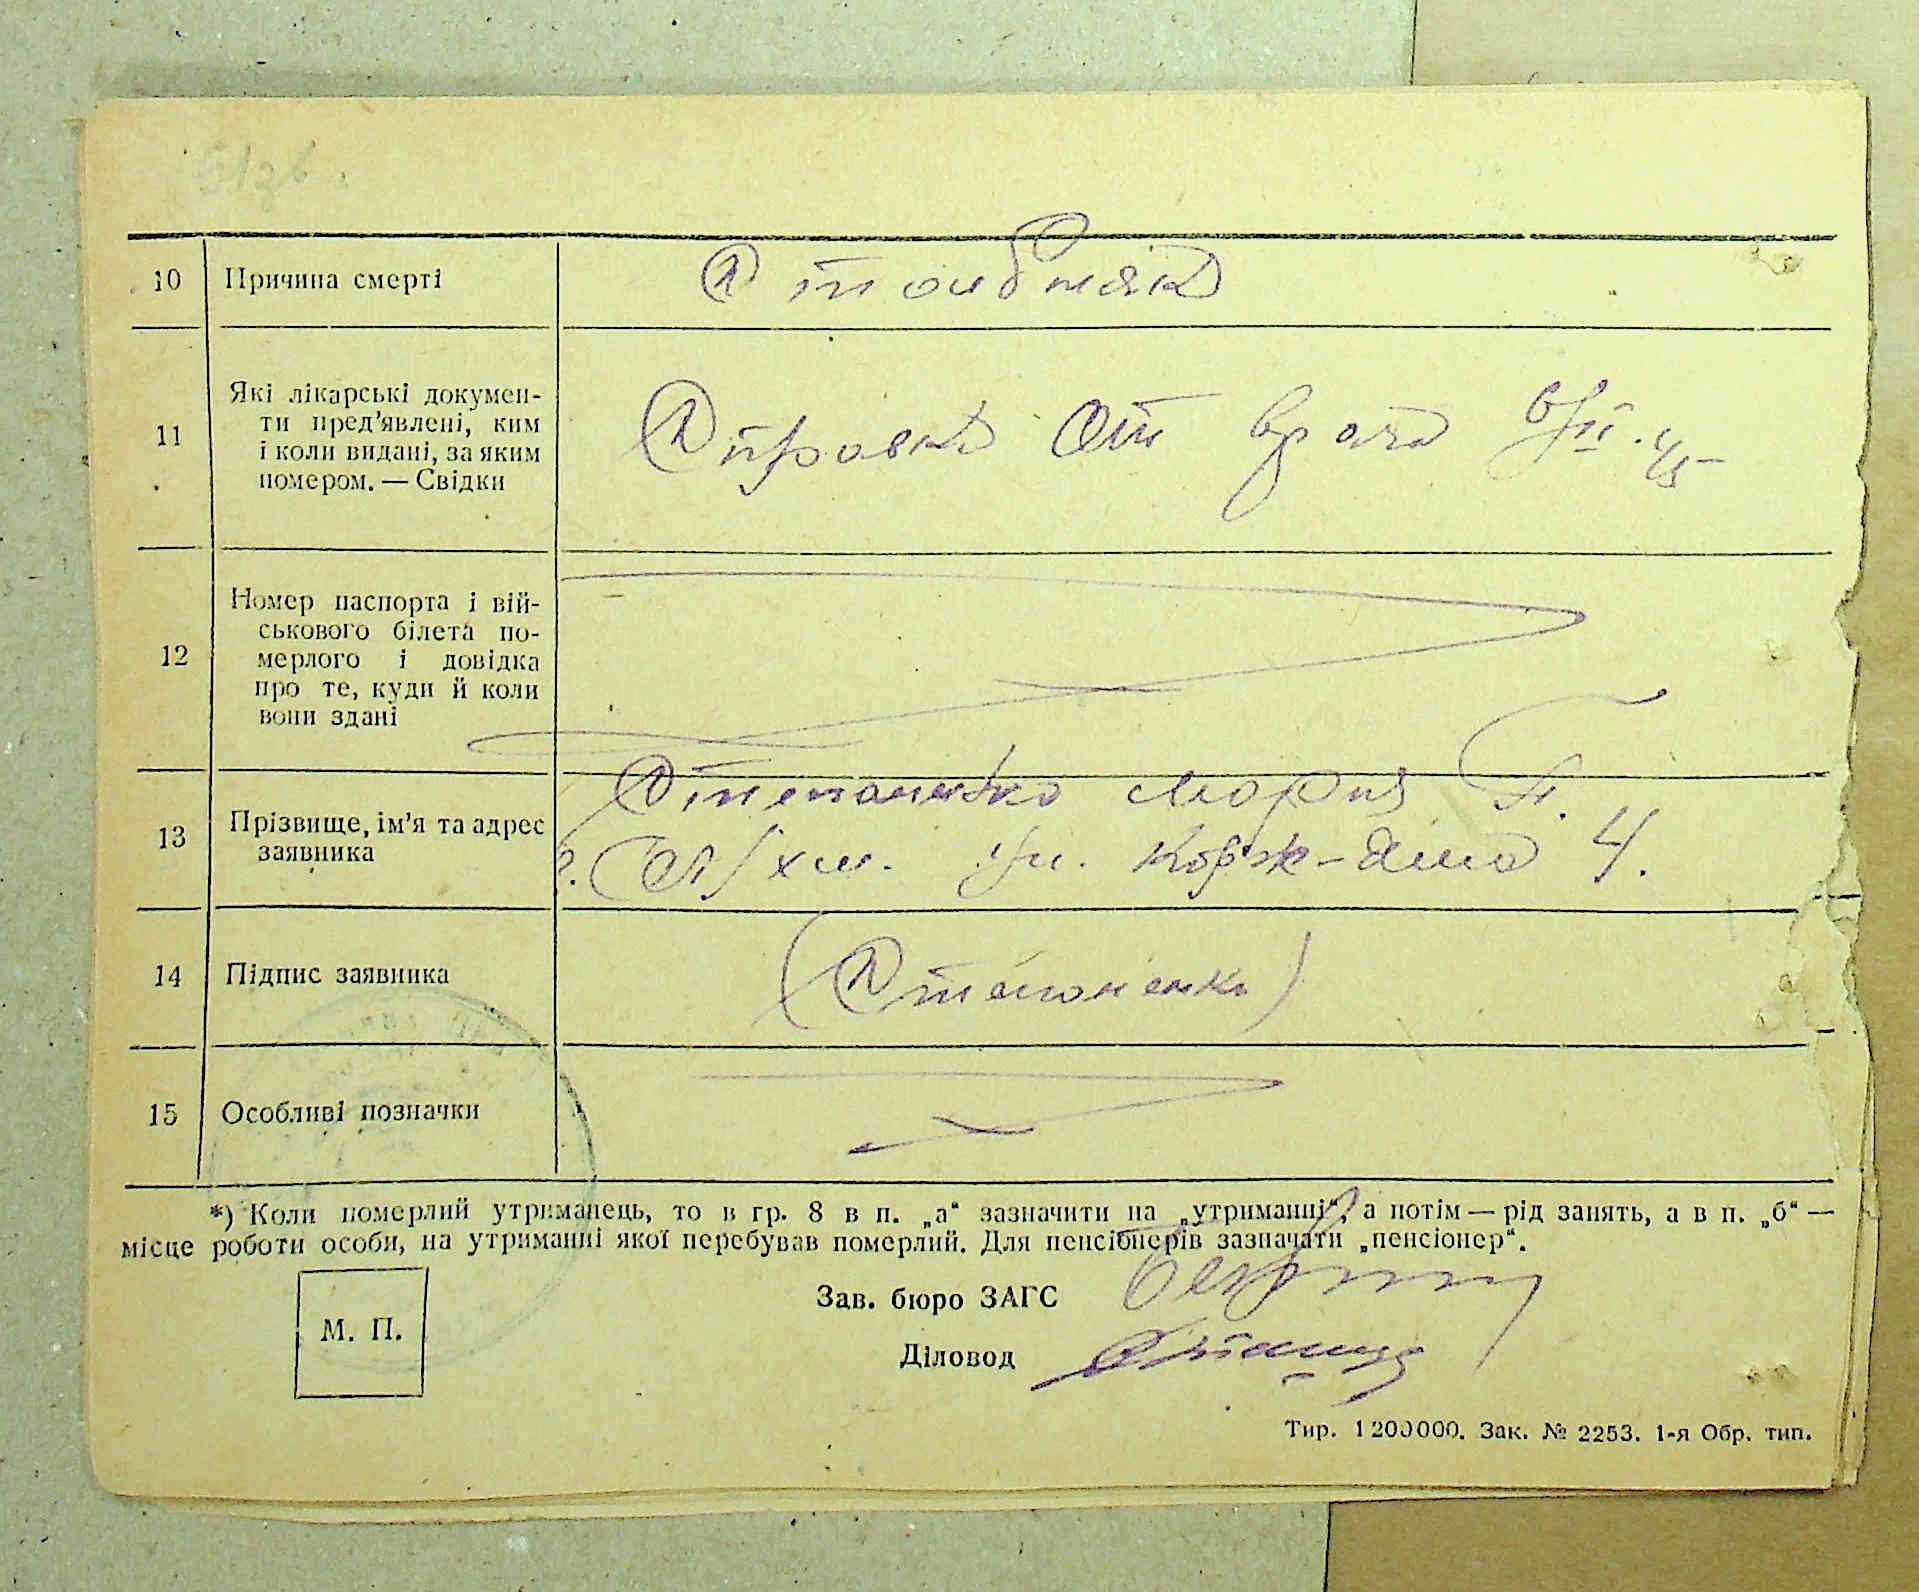 10 Причина смерті Столбняк
11 Які лікарські докумен-
ти пред'явлені, ким
і коли видані, за яким
номером. — Свідки
Справка от врача
12 Номер паспорта і вій-
ськового білета по-
мерлого і довідка
про те, куди й коли
вони здані
13 Прізвище, ім'я та адрес
заявника
Степаненко Мария П.
ул. Корж-Яма 4.
14 Підпис заявника (Степаненко)
15 Особливі позначки
*) Коли померлий утриманець, то в гр. 8 в п. „а“ зазначити на „утриманні“, а потім — рід занять, а в п. „б“ —
місце роботи особи, на утриманні якої перебував померлий. Для пенсіонерів зазначати „пенсіонер“.
М. П.
Зав. бюро ЗАГС
Діловод
Тир. 1200000. Зак. № 2253. 1-я Обр. тип.